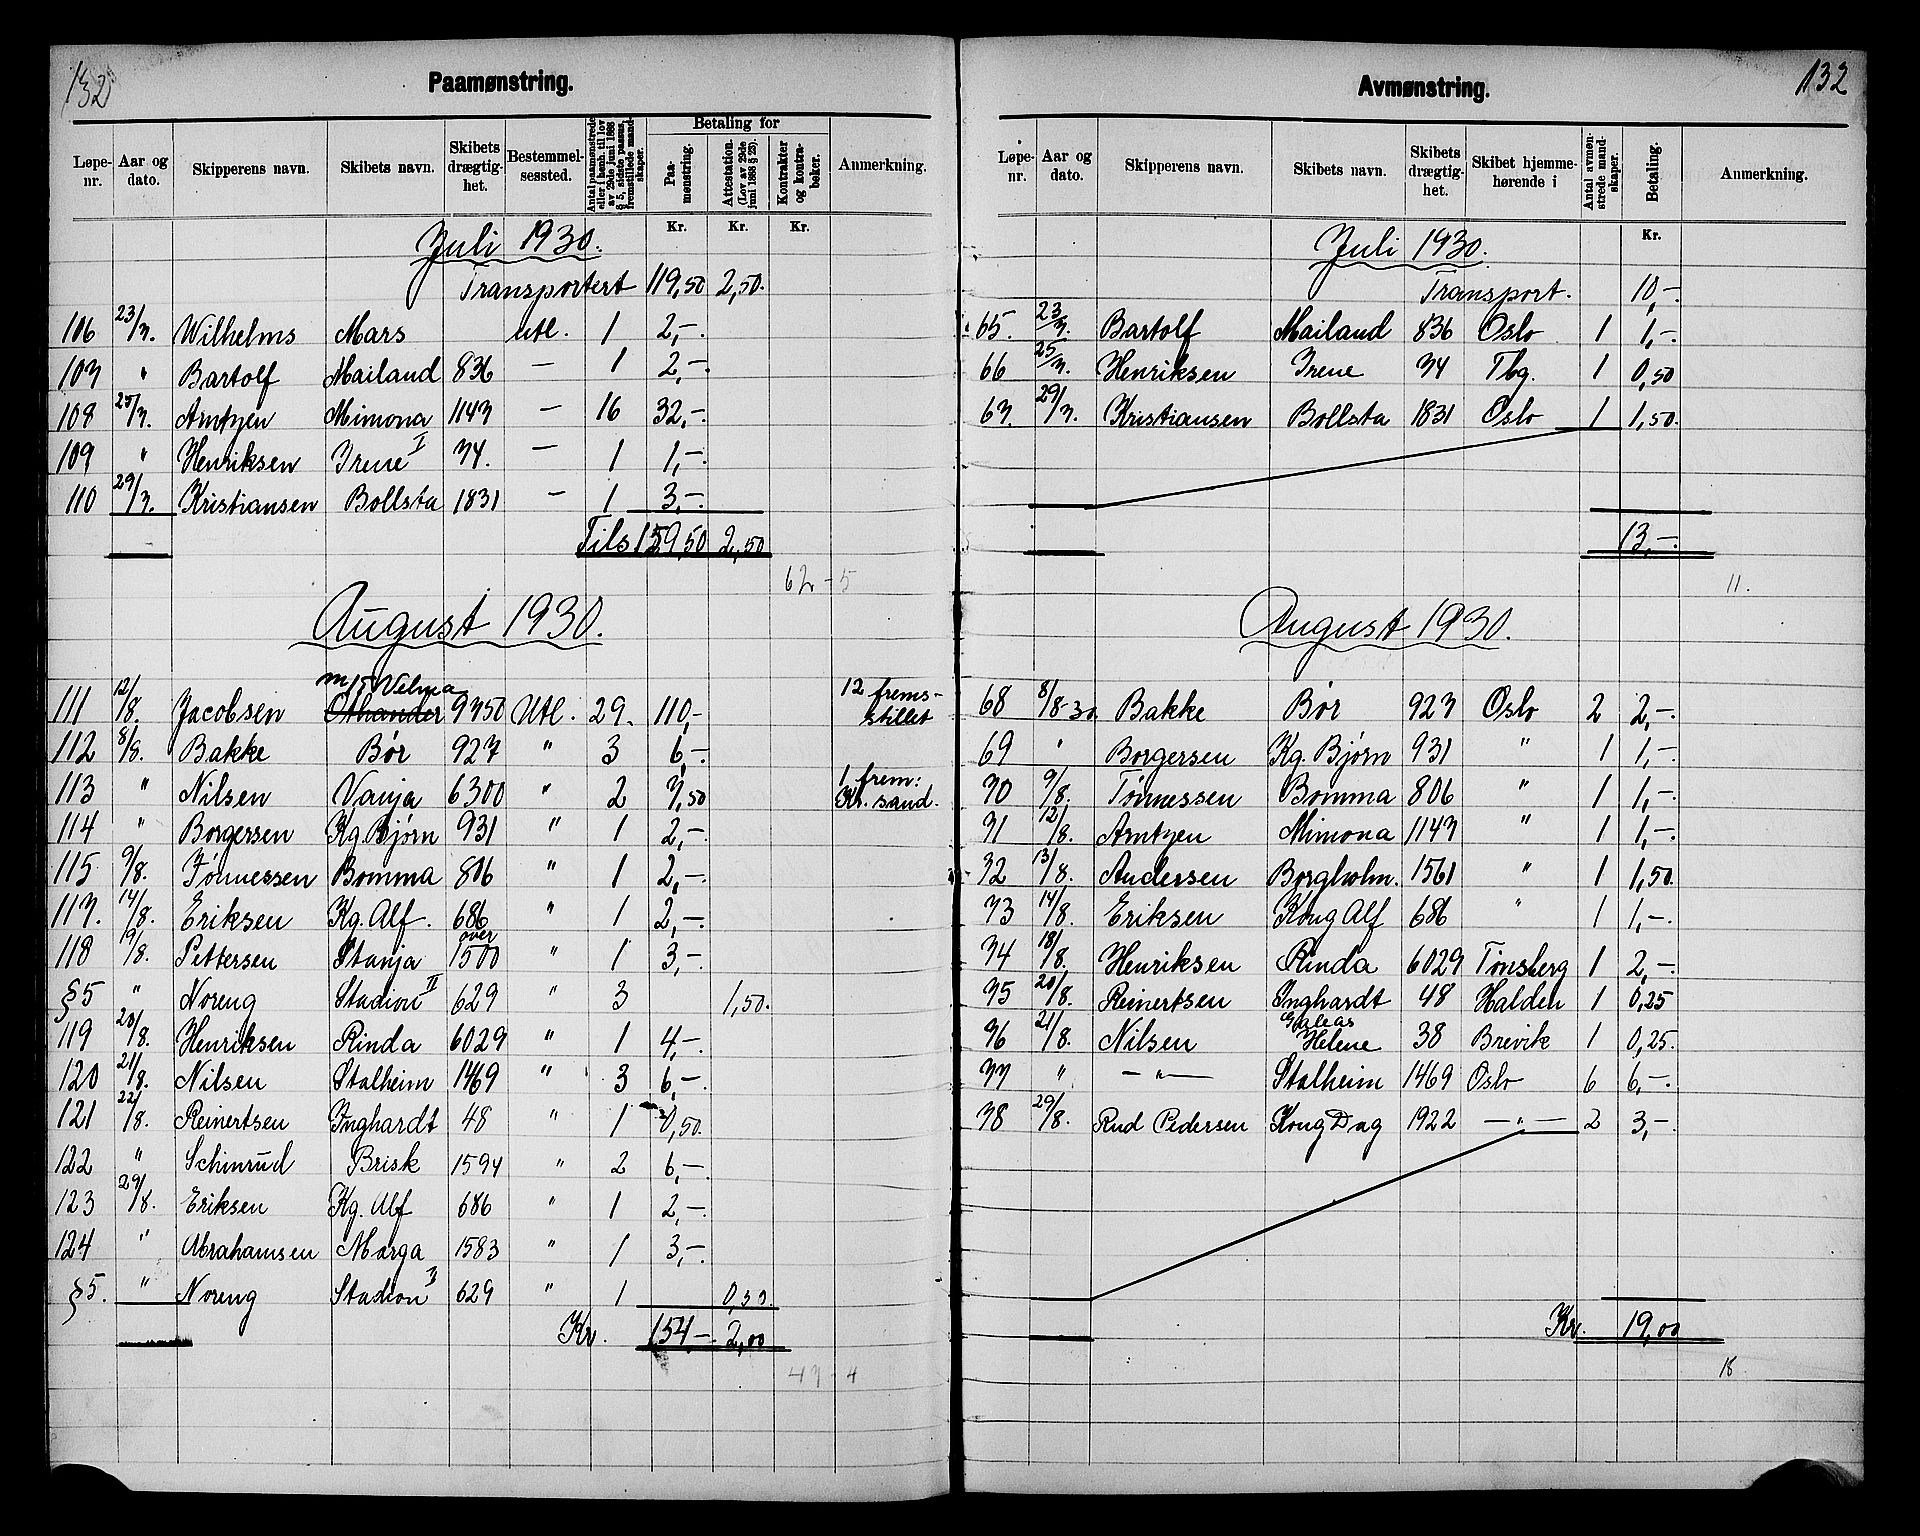 132
Paamønstring.
Løpe-nr. | Aar og dato. | Skipperens navn. | Skibets navn. | Skibets drægtig-het. | Bestemmel-sessted. | Antal paamønstrede eller i henh. til lov av 29de juni 1888 § 5, sidste passus, fremstillede mand-skaper. | Betaling for | Paa-mønstring. | Attestation. (Lov av 29de juni 1888 § 25). | Kontrakter og kontra-bøker. | Anmerkning.
Kr. Kr. Kr.
Juli 1930.
Transportert 119,50 2,50.
106 23/7. Wilhelms Mars Utl. 1 2,-
107 " Bartolf Mailand 836 — 1 2,-
108 25/7. Arntzen Mimona 1147 — 16 32,-
109 " Henriksen Irene II 74. — 1 1,-
110 29/7. Kristiansen Bollsta 1831 — 1 3,-
Tils 159,50 2,50
62 - 5
August 1930.
m/s Velma
111 12/8. Jacobsen 9750 Utl. 29. 110,- 12 frems-stillet
112 8/8. Bakke Bør 927 " 3 6,-
113 " Nilsen Vanja 6300 " 2 7,50 1 frem: Kr. sand.
114 " Borgersen Kg. Bjørn 931 " 1 2,-
115 9/8. Tønnessen Bomma 806 " 1 2,-
117. 14/8. Eriksen Kg. Alf. 686 " 1 2,-
118 19/8. Pettersen Stanja over 1500 " 1 3,-
§5 " Noreng Stadion II 629 " 3 1,50.
119 20/8. Henriksen Rinda 6029 " 1 4,-
120 21/8. Nilsen Stalheim 1469 " 3 6,-
121 22/8. Reinertsen Inghardt 48 " 1 0,50.
122 " Schinrud Brisk 1594 " 2 6,-
123 29/8. Eriksen Kg. Alf 686 " 1 2,-
124 " Abrahamsen Marga 1583 " 1 3,-
§5. " Noreng Stadion II 629 " 1 0,50.
Kr. 154,- 2,00
47 - 4
132
Avmønstring.
Løpe-nr. | Aar og dato. | Skipperens navn. | Skibets navn. | Skibets drægtig-het. | Skibet hjemme-hørende i | Antal avmøn-strede mand-skaper. | Betaling. | Anmerkning.
Kr.
Juli 1930.
Transport. 10,-
65. 23/7. Bartolf Mailand 836 Oslo 1 1,-
66 25/7. Henriksen Irene 74 Tbg. 1 0,50
67. 29/7. Kristiansen Bollsta 1831 Oslo 1 1,50.
13,-
11.
August 1930.
68 8/8-30. Bakke Bør 927 Oslo 2 2,-
69 " Borgersen Kg. Bjørn 931 " 1 1,-
70 9/8. Tønnessen Bomma 806 " 1 1,-
71 12/8. Arntzen Mimona 1147 " 1 1,-
72 13/8. Andersen Borgholm. 1561 " 1 1,50.
73 14/8. Eriksen Kong Alf 686 " 1 1,-
74 18/8. Henriksen Rinda 6029 Tønsberg 1 2,-
75 20/8. Reinertsen Inghardt 48 Halden 1 0,25
76 21/8. Nilsen Helene 38 Brevik 1 0,25.
77 " — " — Stalheim 1469 Oslo 6 6,-
78 29/8. Rud Pedersen Kong Dag 1922 — " — 2 3,-
Kr. 19,00
18